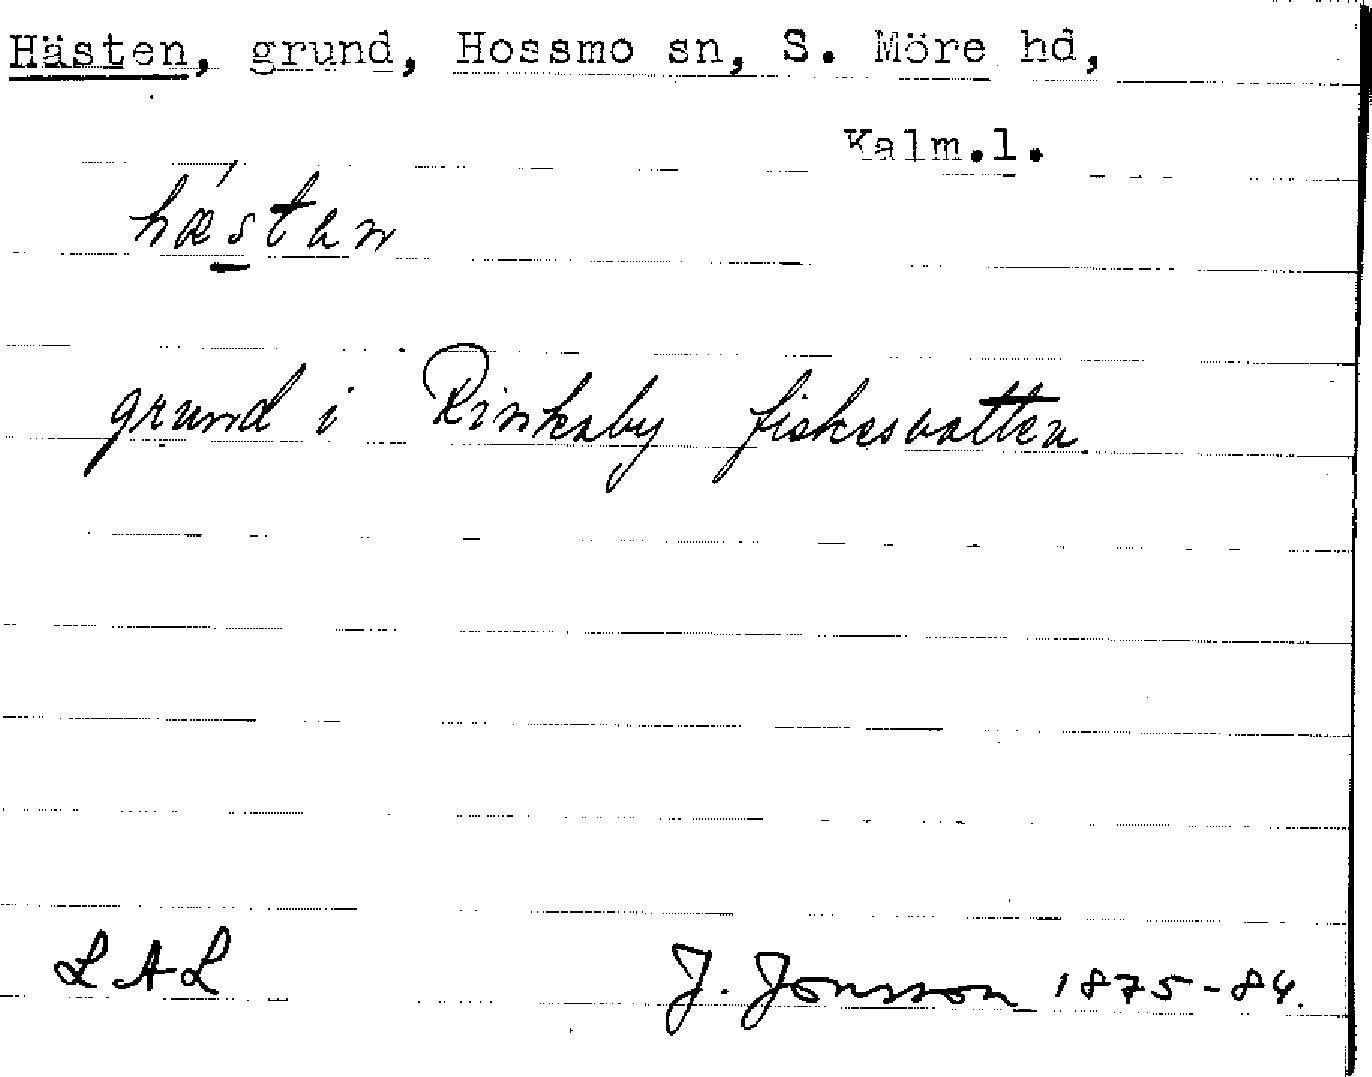 Hästen, grund, Hossmo sn, S. Möre hd,
Kalm.l.
hǽstan
grund i Rinkaby fiskesvatten.
LAL
J. Jonsson 1875-84.